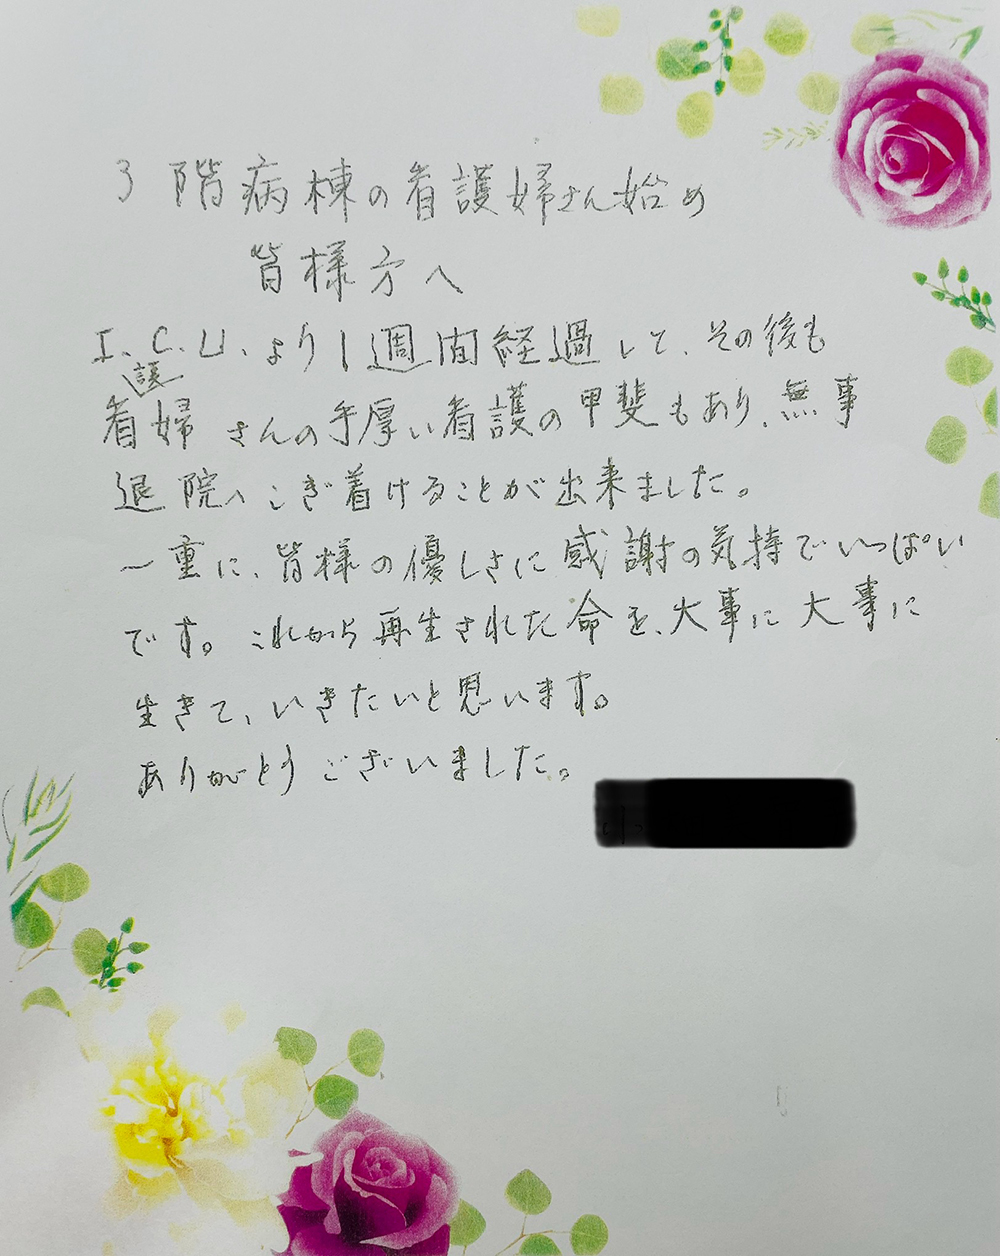 3階病棟の看護婦さん始め
皆様方へ
I.C.U.より1週間経過して、その後も
看護婦さんの手厚い看護の甲斐もあり、無事
退院へこぎ着けることが出来ました。
一重に、皆様の優しさに感謝の気持でいっぱい
です。これから再生された命を、大事に大事に
生きて、いきたいと思います。
ありがとうございました。